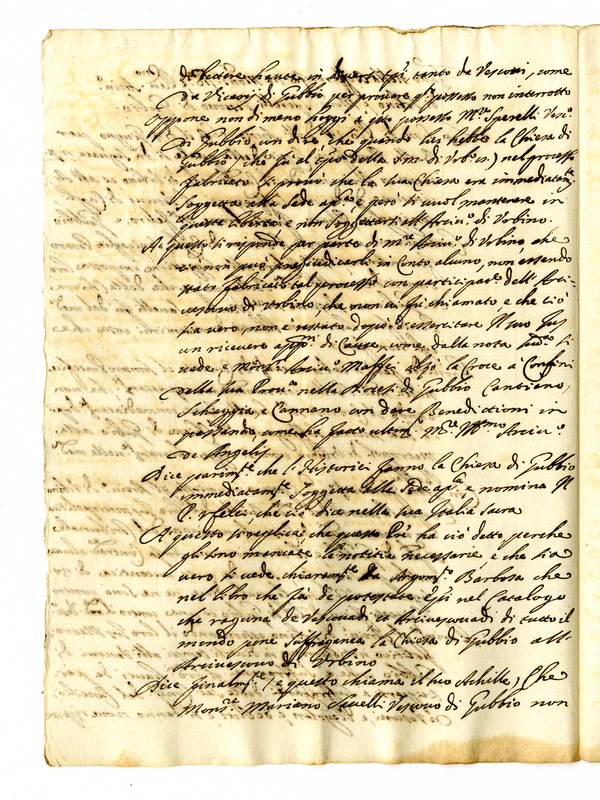 di lettere haute in diversi tpi, tanto da Vescovi, come
da Vicarij di Gubbio per provare qto possesso non interrotto
Oppone non di meno hoggi à qto possesso Mre Sperelli Vesco
di Gubbio con dire che quando lui hebbe la Chiesa di
Gubbio, che fù al tpo della di Urbo nel processo
fabricato si provò che la sua Chiesa era immediatamte
soggetta alla Sede apca e però si vuol mantenere in
questa libertà e non soggettarsi all'Arcivo di Urbino.
A questo si risponde per parte di Mre Arcivo di Urbino, che
ciò non può pregiudicarli in conto alcuno, non essendo
stato fabricato tal processo con participae dell'Arci-
vescovo di Urbino, che non vi fù chiamato e che ciò
sia vero, non è restato dopò d'essercitare Il suo Jus
in ricevere di Cause, come dalla nota si
vede, e Monsr Arcivo Maffei alzò la Croce à Confini
della sua Prova nella Diocesi di Gubbio Cantiano,
Scheggia, e Cannano con dare Benedictioni in
passando, come ha fatto ultimte Mre Illmo Arcivo
De Angelis
Dice parimte che l'Historici fanno la Chiesa di Gubbio
immediatamte soggetta alla Sede apca, e nomina Il
P. Ufelli che ciò dice nella sua Italia Sacra
A questo si replica che questo Pre ha ciò detto perche
gli sono mancate le notitie necessarie, e che sia
vero si vede chiaramte Da Barbosa che
nel libro che fa de potestate Epi nel Catalogo
che raguna de Vescovadi et Arcivescovadi di tutto il
mondo pone suffraganea la Chiesa di Gubbio all'
Arcivescovo di Urbino
Dice finalmte (e questo chiama il suo Achille) Che
Monsre Mariano Savelli Vescovo di Gubbio non